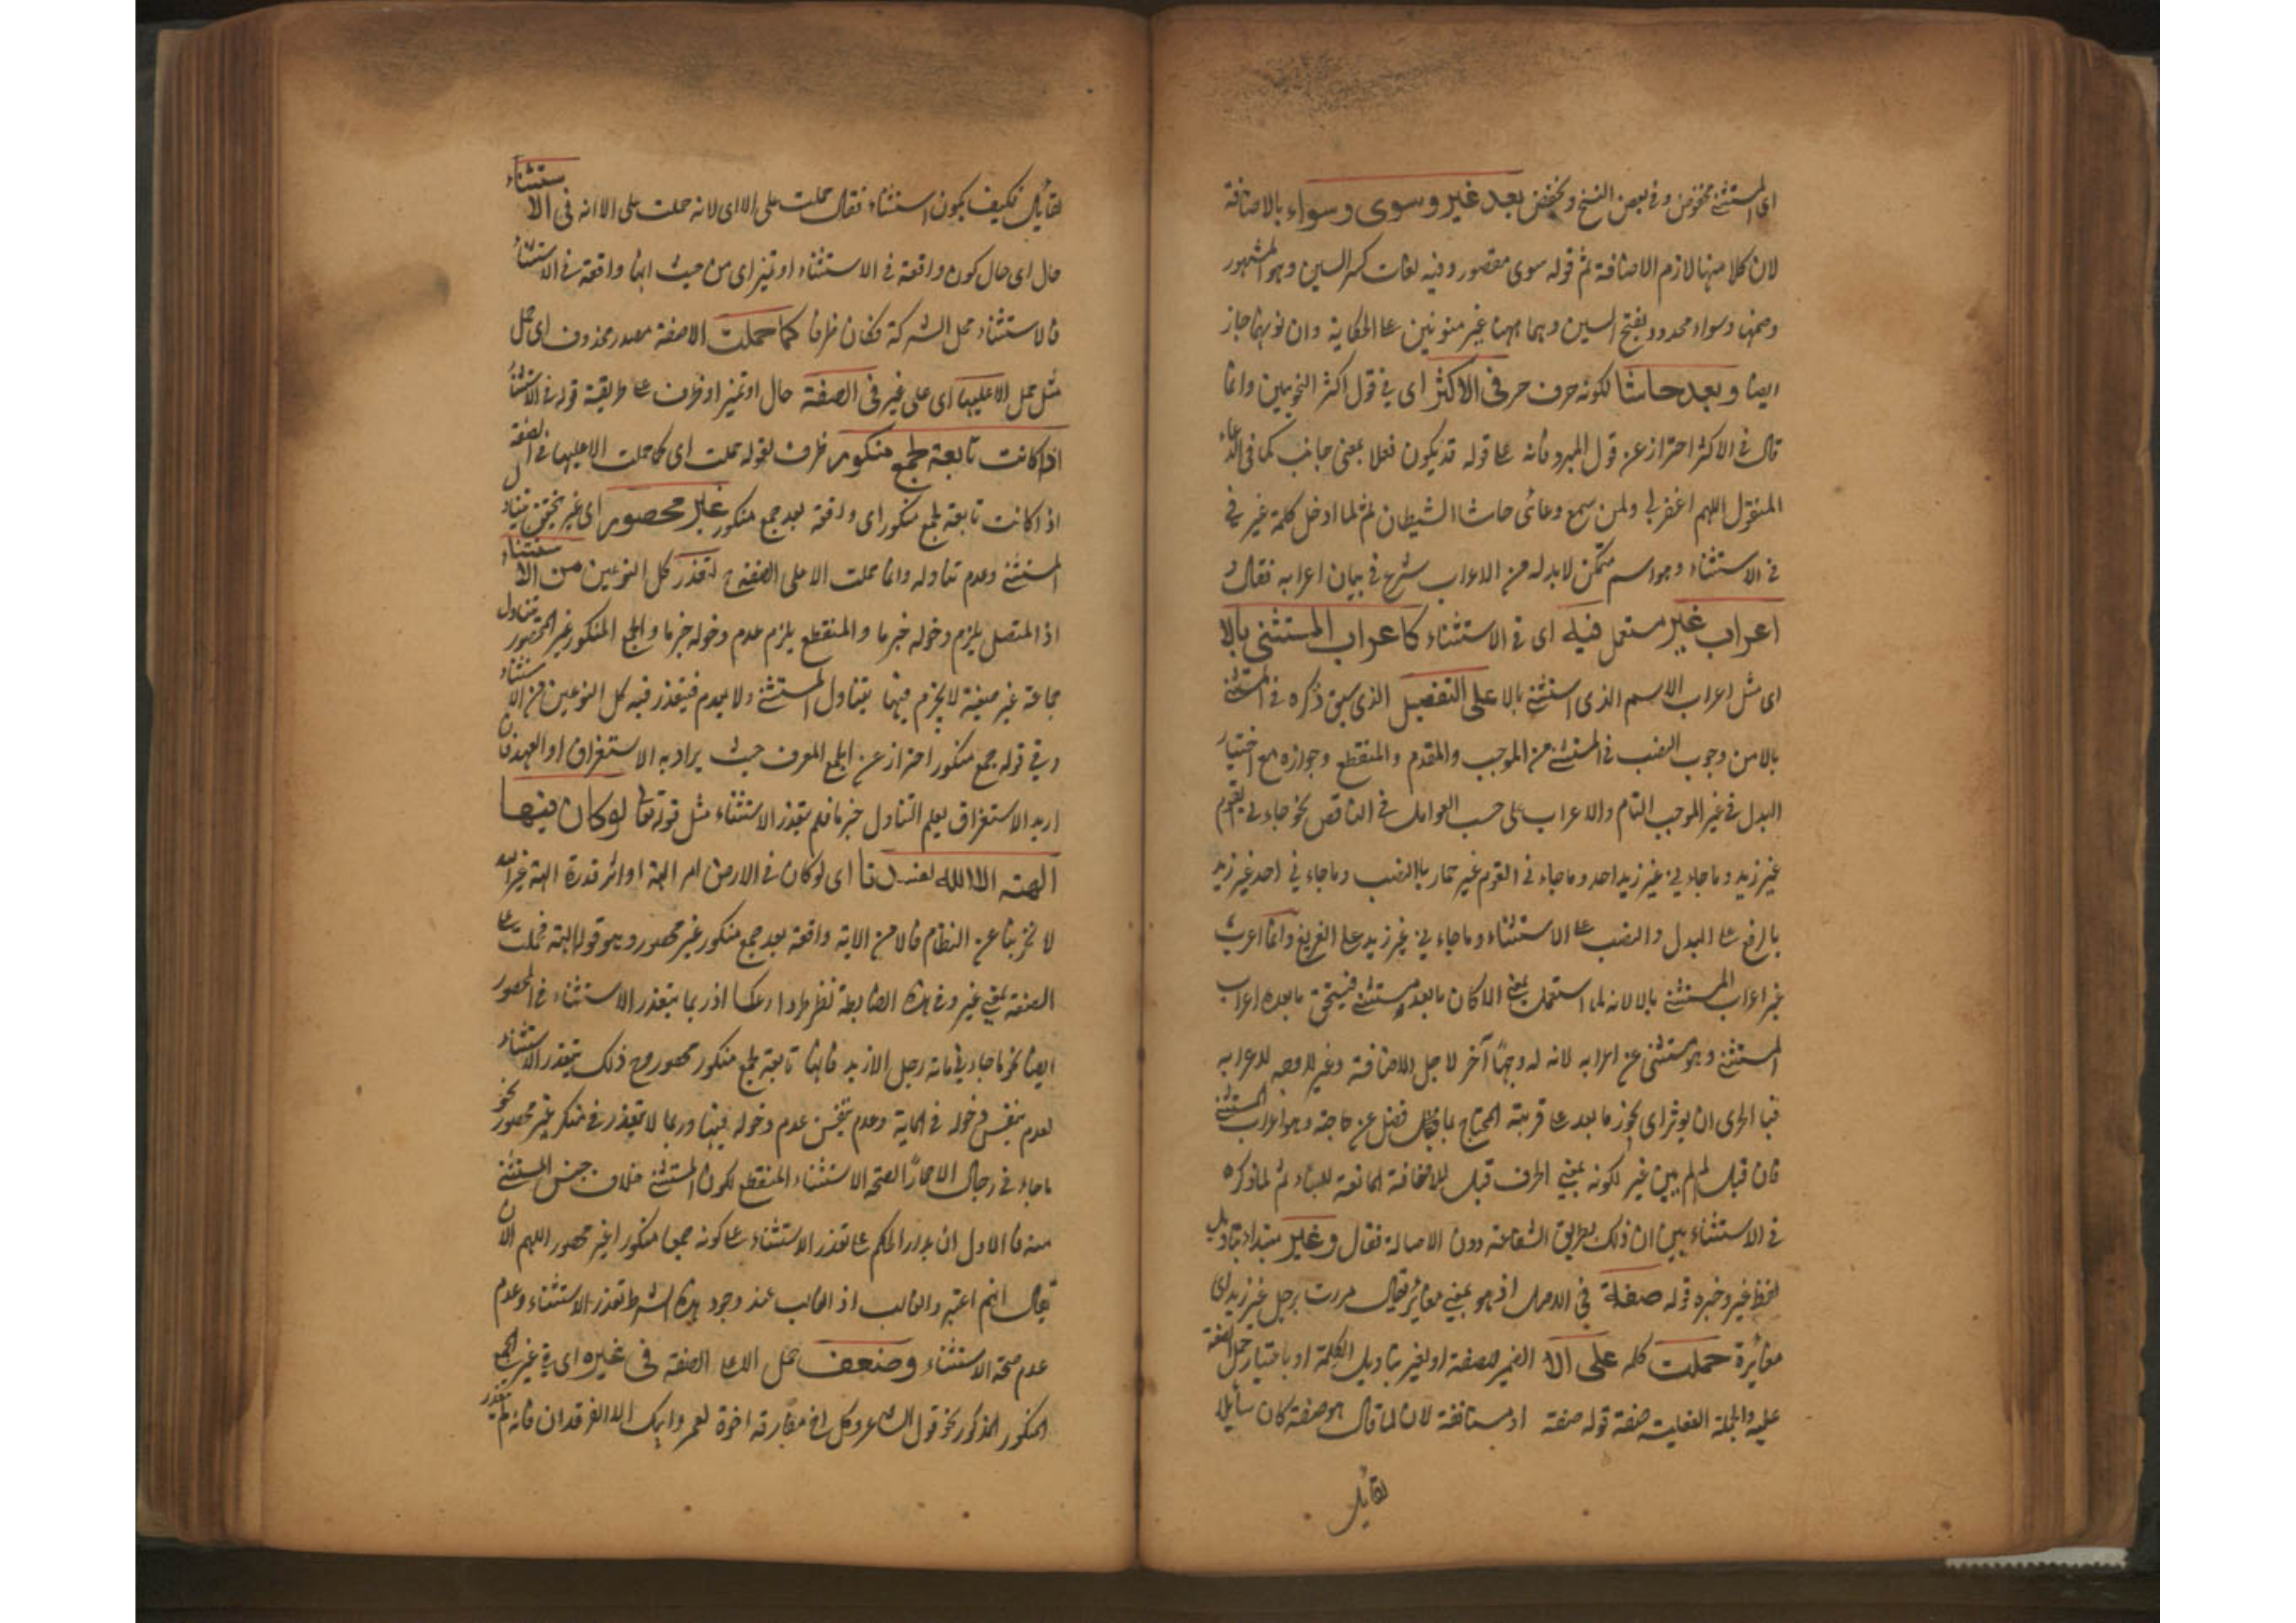 اى المستثنى مخفوض وفى بعض النسخ ويخفض بعد غير وسوى وسواء بالاضافة
لان كلا منها لازم الاضافة ثم قوله سوى مقصور وفيه لغات كسر السين وهو المشهور
وضمها وسواء ممدود بفتح السين وهما ههنا غير منونين على الحكاية وان نونهما جاز
ايضا وبعد حاشا لكونه حرف جر فى الاكثر اى فى قول اكثر النحويين وانما
قال فى الاكثر احتراز عن قول المبرد فانه على قوله قد يكون فعلا بمعنى جانب كما فى الدعاء
المنقول اللهم اغفر لى ولمن سمع دعائى حاشا الشيطان ثم لما ادخل كلمة غير فى
فى الاستثناء وهو اسم متمكن لا بد له من الاعراب شرع فى بيان اعرابه فقال و
اعراب غير مستعمل فيه اى فى الاستثناء كاعراب المستثنى بالا
اى مثل اعراب الاسم الذى استثنى بالا على التفصيل الذى سبق ذكره فى المستثنى
بالا من وجوب النصب فى المستثنى من الموجب والمقدم والمنقطع وجوازه مع اختيار
البدل فى غير الموجب التام والاعراب على حسب العوامل فى الناقص نحو جاءنى القوم
غير زيد وما جاءنى غير زيد احد وما جاءنى القوم غير حمار بالنصب وما جاءنى احد غير زيد
بالرفع على البدل والنصب على الاستثناء وما جاءنى غير زيد على التفريغ وانما اعرب
غير اعراب المستثنى بالا لانه لما استعملت بمعنى الا كان ما بعده مستثنى فيستحق ما بعده اعراب
المستثنى وهو مستثنى عن اعرابه لانه له وجها آخر لاجل الاضافة وغير لا وجه لاعرابه
فبالحرى ان يوثر اى يجوز ما بعد على قرينة المحتاج بما فضل عن حاجته وهو اعراب المستثنى
فان قيل لم لم يبن غير لكونه بمعنى الحرف قيل للاضافة المانعة للبناء ثم لما ذكره
فى الاستثناء بين ان ذلك بطريق الشفاعة دون الاصالة فقال وغير مبتدا بتاويل
لفظ غير وخبره قوله صفة فى الاصل اذ هو بمعنى مغائر يقال مررت برجل غير زيد اى
مغائرة حملت كلمه على الا الضمير للصفة او لغير بتاويل الكلمة او باختيار حمل الصفة
عليه والجملة الفعلية صفة قوله صفة او مستانفة لان لما قال هو صفة كان سائلا
لقايل
لقايل فكيف يكون استثناء فقال حملت على الا اى لانه حملت على الا انه فى الاستثناء
حال اى حال كون واقعة فى الاستثناء او تميز اى من حيث انها واقعة فى الاستثناء
فالاستثناء محل الشركة فكان ظرفا كما حملت الا صفة مصدر محذوف اى حمل
مثل حمل الا عليها اى على غير فى الصفة حال او تميز او ظرف على طريقة قوله فى الاستثناء
اذا كانت تابعة لجمع منكور ظرف لقوله حملت اى كما حملت الا عليها فى الصفة
اذا كانت تابعة لجمع منكور اى واقعة بعد جمع منكور غير محصور اى غير تحقق تناول
المستثنى وعدم تناوله وانما حملت الا على الصفة ح لتعذر كل النوعين من الاستثناء
اذ المتصل يلزم دخوله جزما والمنقطع يلزم عدم دخوله جزما والجمع المنكور غير المحصور تناول
جماعة غير معينة لا يجزم فيها بتناول المستثنى ولا بعدم فيتعذر فيه كل النوعين من الاستثناء
وفى قوله جمع منكور احتراز عن الجمع المعرف حيث يراد به الاستغراق او العهد فان
اريد الاستغراق يعلم التناول جزما فلم يتعذر الاستثناء مثل قوله تعالى لو كان فيهما
الهة الا الله لفسدتا اى لو كان فى الارض امر الهة او اثر قدرة الهة غير الله
لا يخربتا عن النظام فالا من الاية واقعة بعد جمع منكور غير محصور وهو قوله الهة فحملت على
الصفة بمعنى غير وفى هذه الضابطة نظر طردا وعكسا اذ ربما يتعذر الاستثناء فى المحصور
ايضا نحو ما جاءنى مائة رجل الا زيد فانها تابعة لجمع منكور محصور ومع ذلك يتعذر الاستثناء
لعدم تيقن دخوله فى المائة وعدم تيقن عدم دخوله فيها وربما لا يتعذر فى منكر غير محصور نحو
ما جاءنى رجال الا حمارا لصحة الاستثناء المنقطع لكون المستثنى خلاف جنس المستثنى
منه فالاولى ان يدار الحكم على تعذر الاستثناء على كونه جمعا منكورا غير محصور اللهم الا ان
يقال انهم اعتبروا الغالب اذ الغالب عند وجود هذه الشرط تعذر الاستثناء وعدم
عدم صحة الاستثناء وضعف حمل الا على الصفة فى غيره اى فى غير الجمع
المنكور المذكور نحو قول الشاعر وكل اخ مفارقه اخوه لعمر ابيك الا الفرقدان فانه لم يتعذر